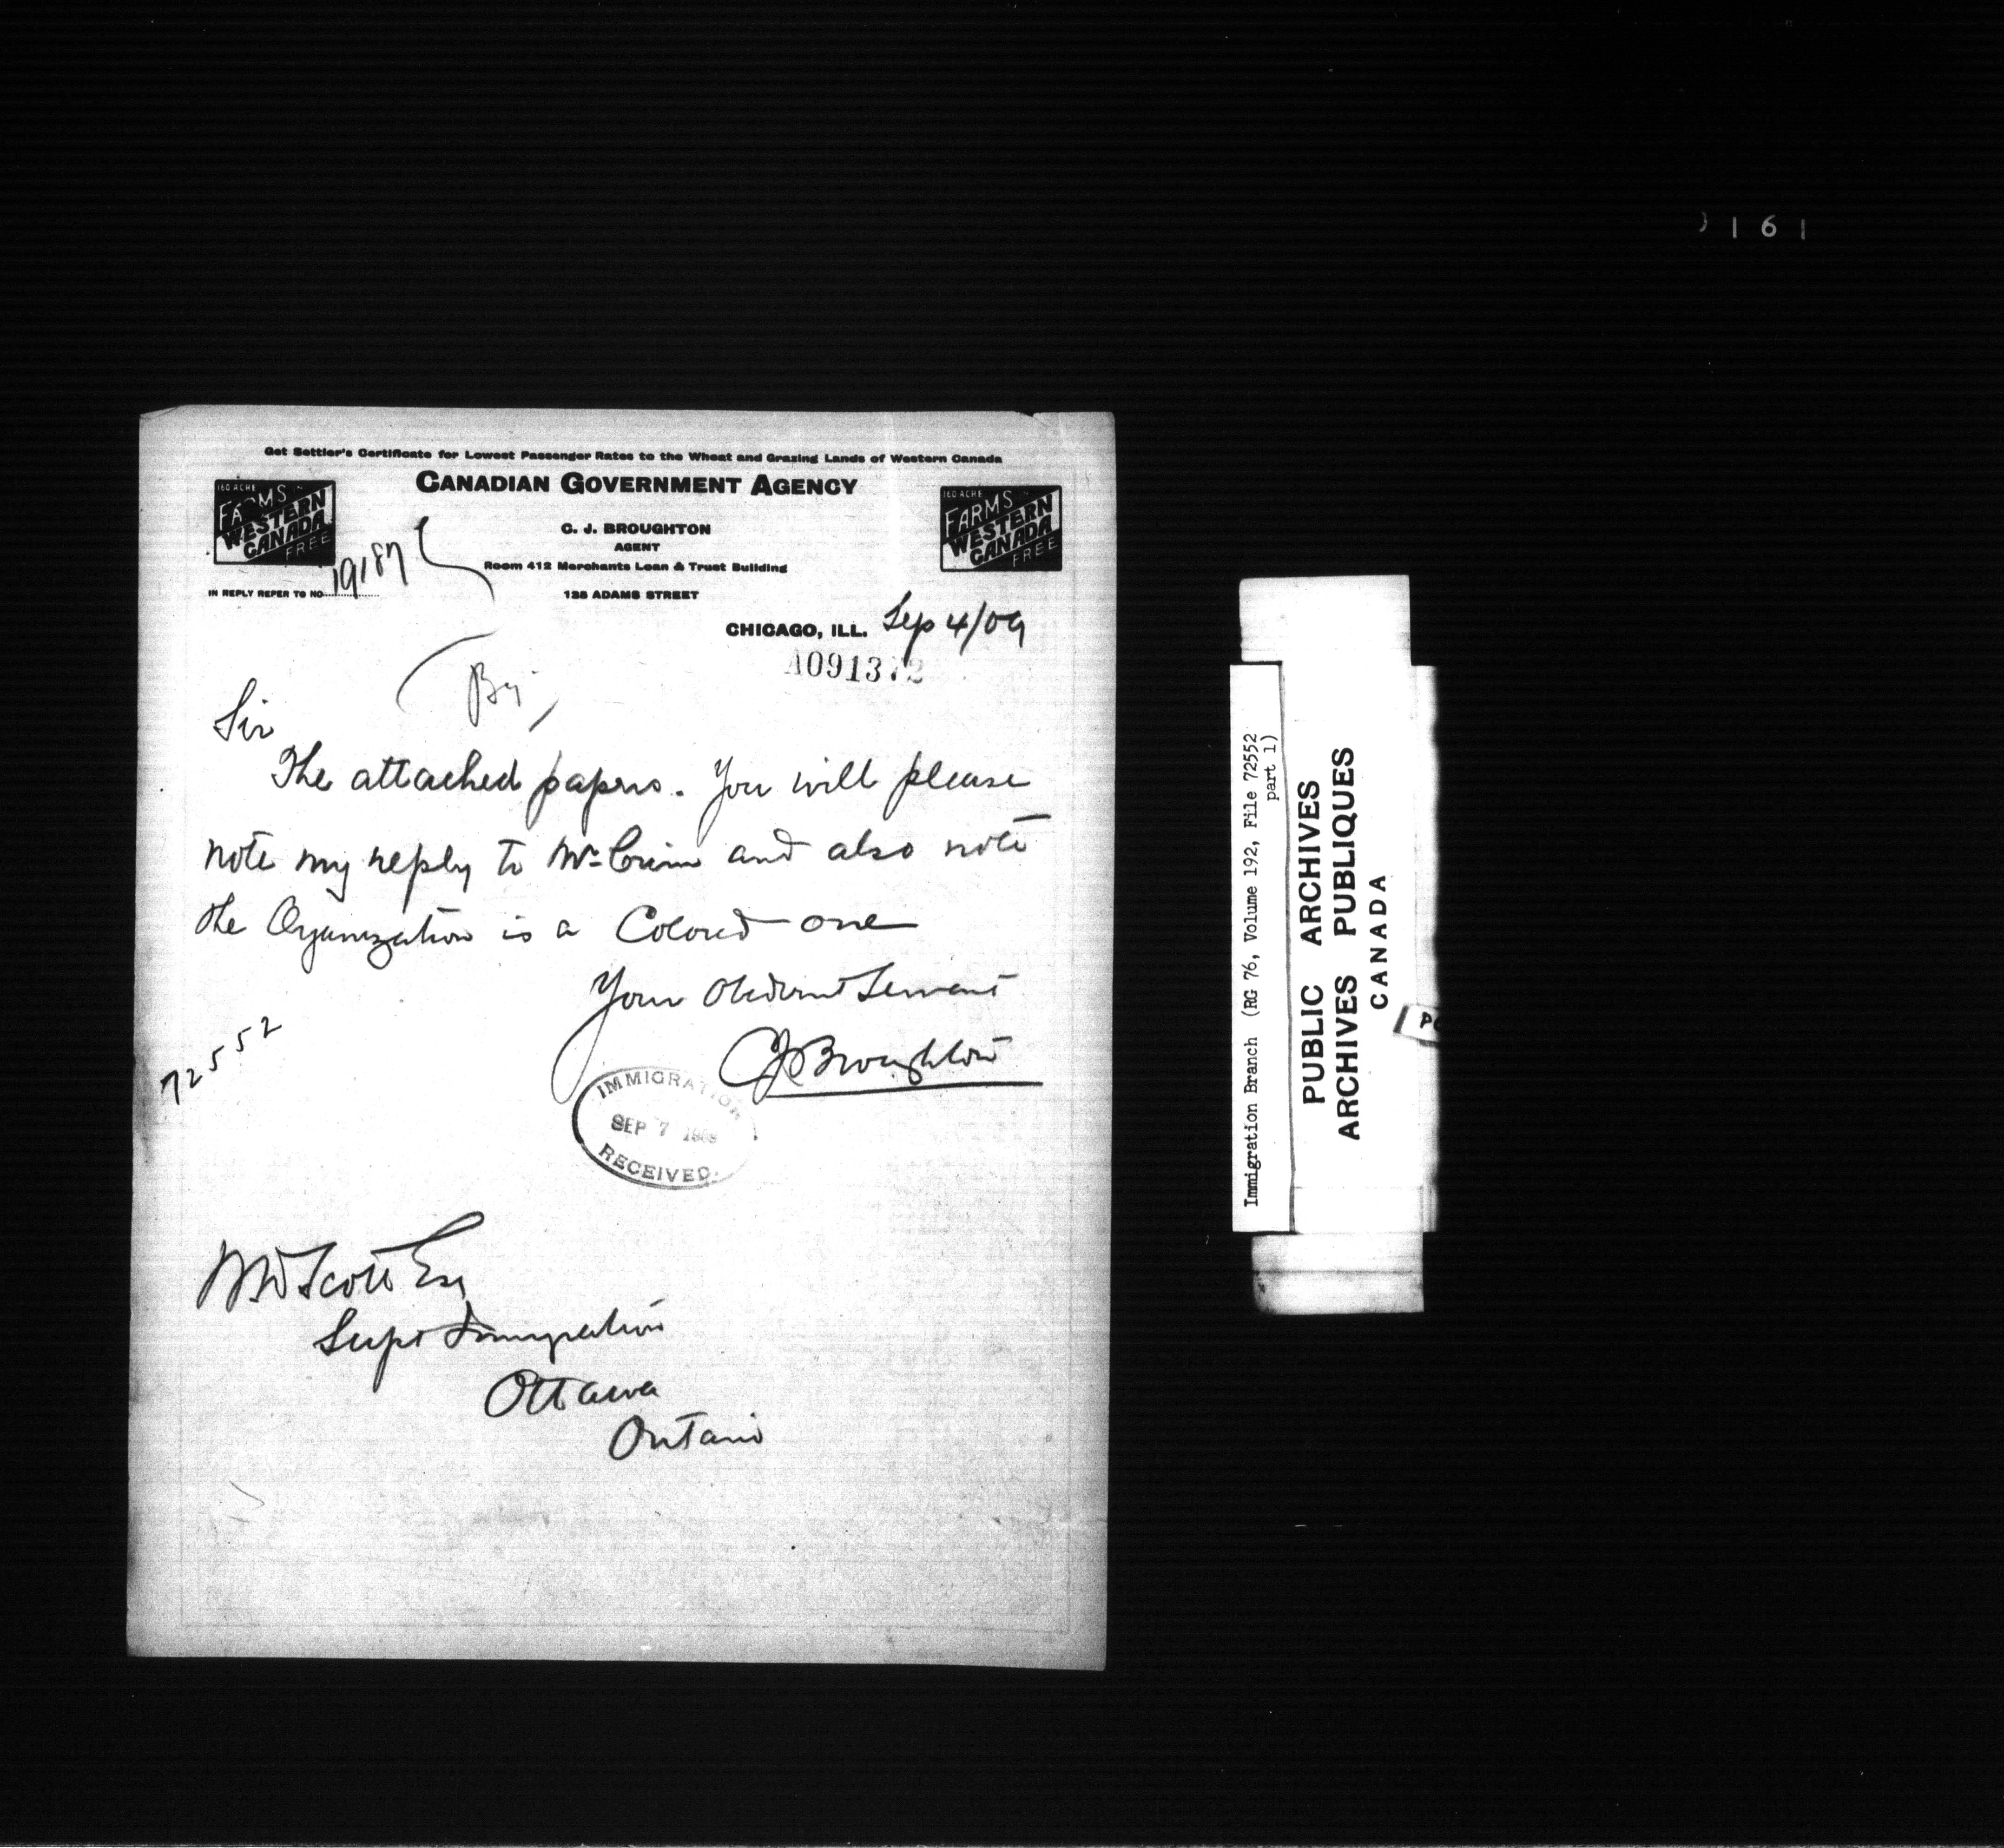 161
Get Settler's Certificate for Lowest Passenger Rates to the Wheat and Grazing Lands of Western Canada
CANADIAN GOVERNMENT AGENCY
160 ACRE
FARMS
WESTERN
CANADA
FREE
160 ACRE
FARMS
WESTERN
CANADA
FREE
C. J. BROUGHTON
AGENT
Room 412 Merchants Loan & Trust Building
IN REPLY REFER TO NO 19187
135 ADAMS STREET
CHICAGO, ILL. Sep 4/09
A091372
Sir
The attached papers. You will please
note my reply to and also note
the Organization is a Colored one
Your Obedient Servant
CJ Broughton
72552
IMMIGRATION
SEP 7 1909
RECEIVED.
WD Scott Esq
Supt Immigration
Ottawa
Ontario
Immigration Branch (RG 76, Volume 192, File 72552
part 1)
PUBLIC ARCHIVES
ARCHIVES PUBLIQUES
CANADA